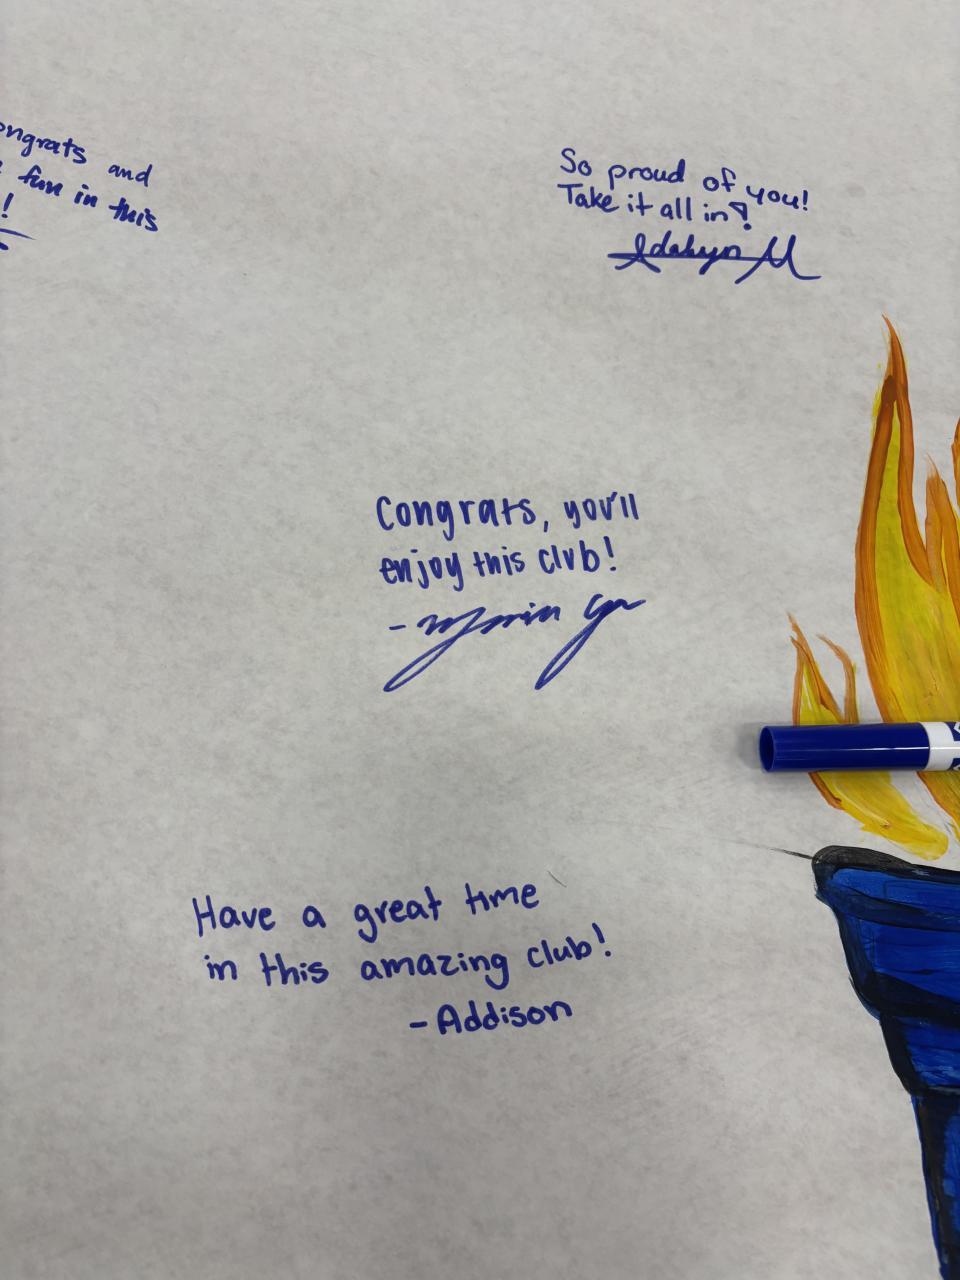 ongrats and
fun in this
!
So proud of you!
Take it all in!
Congrats, you'll
enjoy this club!
Have a great time
in this amazing club!
- Addison